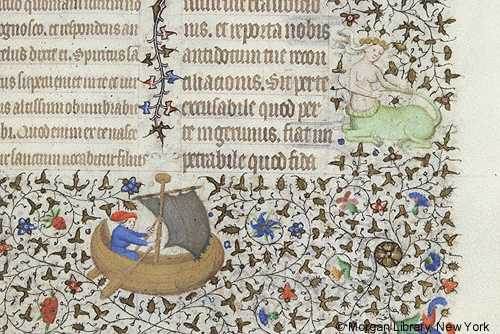 gnosco. et respondens an
gelus dixit ei. Spiritus
us altissimi obumbrabi
bi. Quod enim ex te nasce
sanctum vocabitur filius
nis. et reporta nobis
antidotum tue recon
ciliationis. Sit per te
excusabile quod per
te ingerimus. fiat im
petrabile quod fida
© Morgan Library, New York